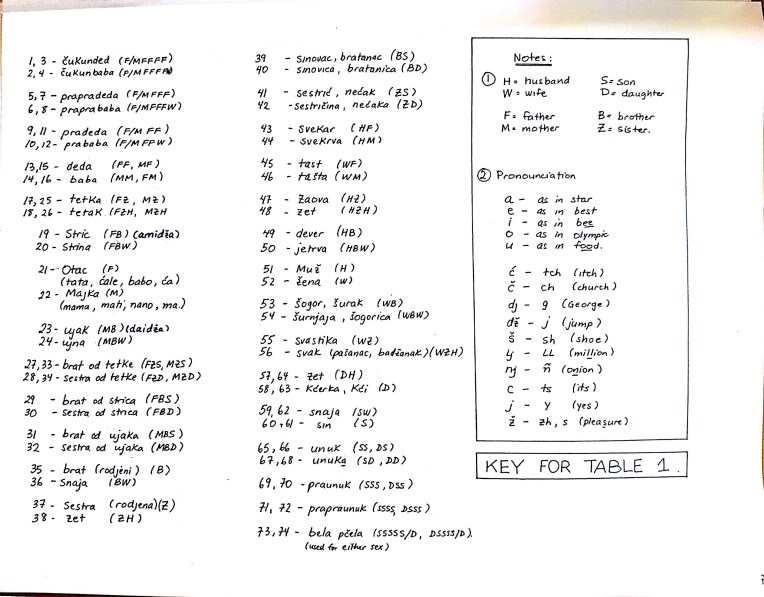 1, 3 - čuKunded (F/MFFFF)
2,4 - čuKunbaba (F/MFFFW)
5,7 - prapradeda (F/MFFF)
6,8 - praprababa (F/MFFFW)
9,11 - pradeda (F/M FF)
10,12 - prababa (F/MFFW)
13,15 - deda (FF, MF)
14,16 - baba (MM, FM)
17,25 - tetKa (FZ, MZ)
18,26 - tetaK (FZH, MZH
19 - Stric (FB) (amidža)
20 - Strina (FBW)
21 - Otac (F)
(tata, ćale, babo, ća)
22 - MajKa (M)
(mama, mati, nano, ma.)
23 - ujaK (MB) (daidža)
24 - ujna (MBW)
27,33 - brat od tetke (FZS, MZS)
28,34 - sestra od tetke (FZD, MZD)
29 - brat od strica (FBS)
30 - sestra od strica (FBD)
31 - brat od ujaka (MBS)
32 - sestra od ujaka (MBD)
35 - brat (rodjeni) (B)
36 - Snaja (BW)
37 - Sestra (rodjena) (Z)
38 - zet (ZH)
39 - sinovac, bratanac (BS)
40 - sinovica, bratanica (BD)
41 - sestrić, nećak (ZS)
42 - sestričina, nećaka (ZD)
43 - sveKar (HF)
44 - sveKrva (HM)
45 - tast (WF)
46 - tašta (WM)
47 - zaova (HZ)
48 - zet (HZH)
49 - dever (HB)
50 - jetrva (HBW)
51 - Muž (H)
52 - žena (W)
53 - šogor, šurak (WB)
54 - šurnjaja, šogorica (WBW)
55 - svastiKa (WZ)
56 - svak (pašanac, badžanak) (WZH)
57,64 - zet (DH)
58, 63 - Kćerka, Kći (D)
59,62 - snaja (SW)
60,61 - sin (S)
65,66 - unuk (SS, DS)
67,68 - unuKa (SD, DD)
69, 70 - praunuk (SSS, DSS)
71, 72 - prapraunuk (SSSS, DSSS)
73,74 - bela pčela (SSSSS/D, DSSSS/D).
(used for either sex)
Notes:
① H = husband S = son
W = wife D = daughter
F = father B = brother
M = mother Z = sister.
② Pronounciation
a - as in star
e - as in best
i - as in bee
o - as in olympic
u - as in food.
ć - tch (itch)
č - ch (church)
dj - g (George)
dž - j (jump)
š - sh (shoe)
y - LL (million)
nj - ñ (onion)
c - ts (its)
j - y (yes)
ž - zh, s (pleasure)
KEY FOR TABLE 1.